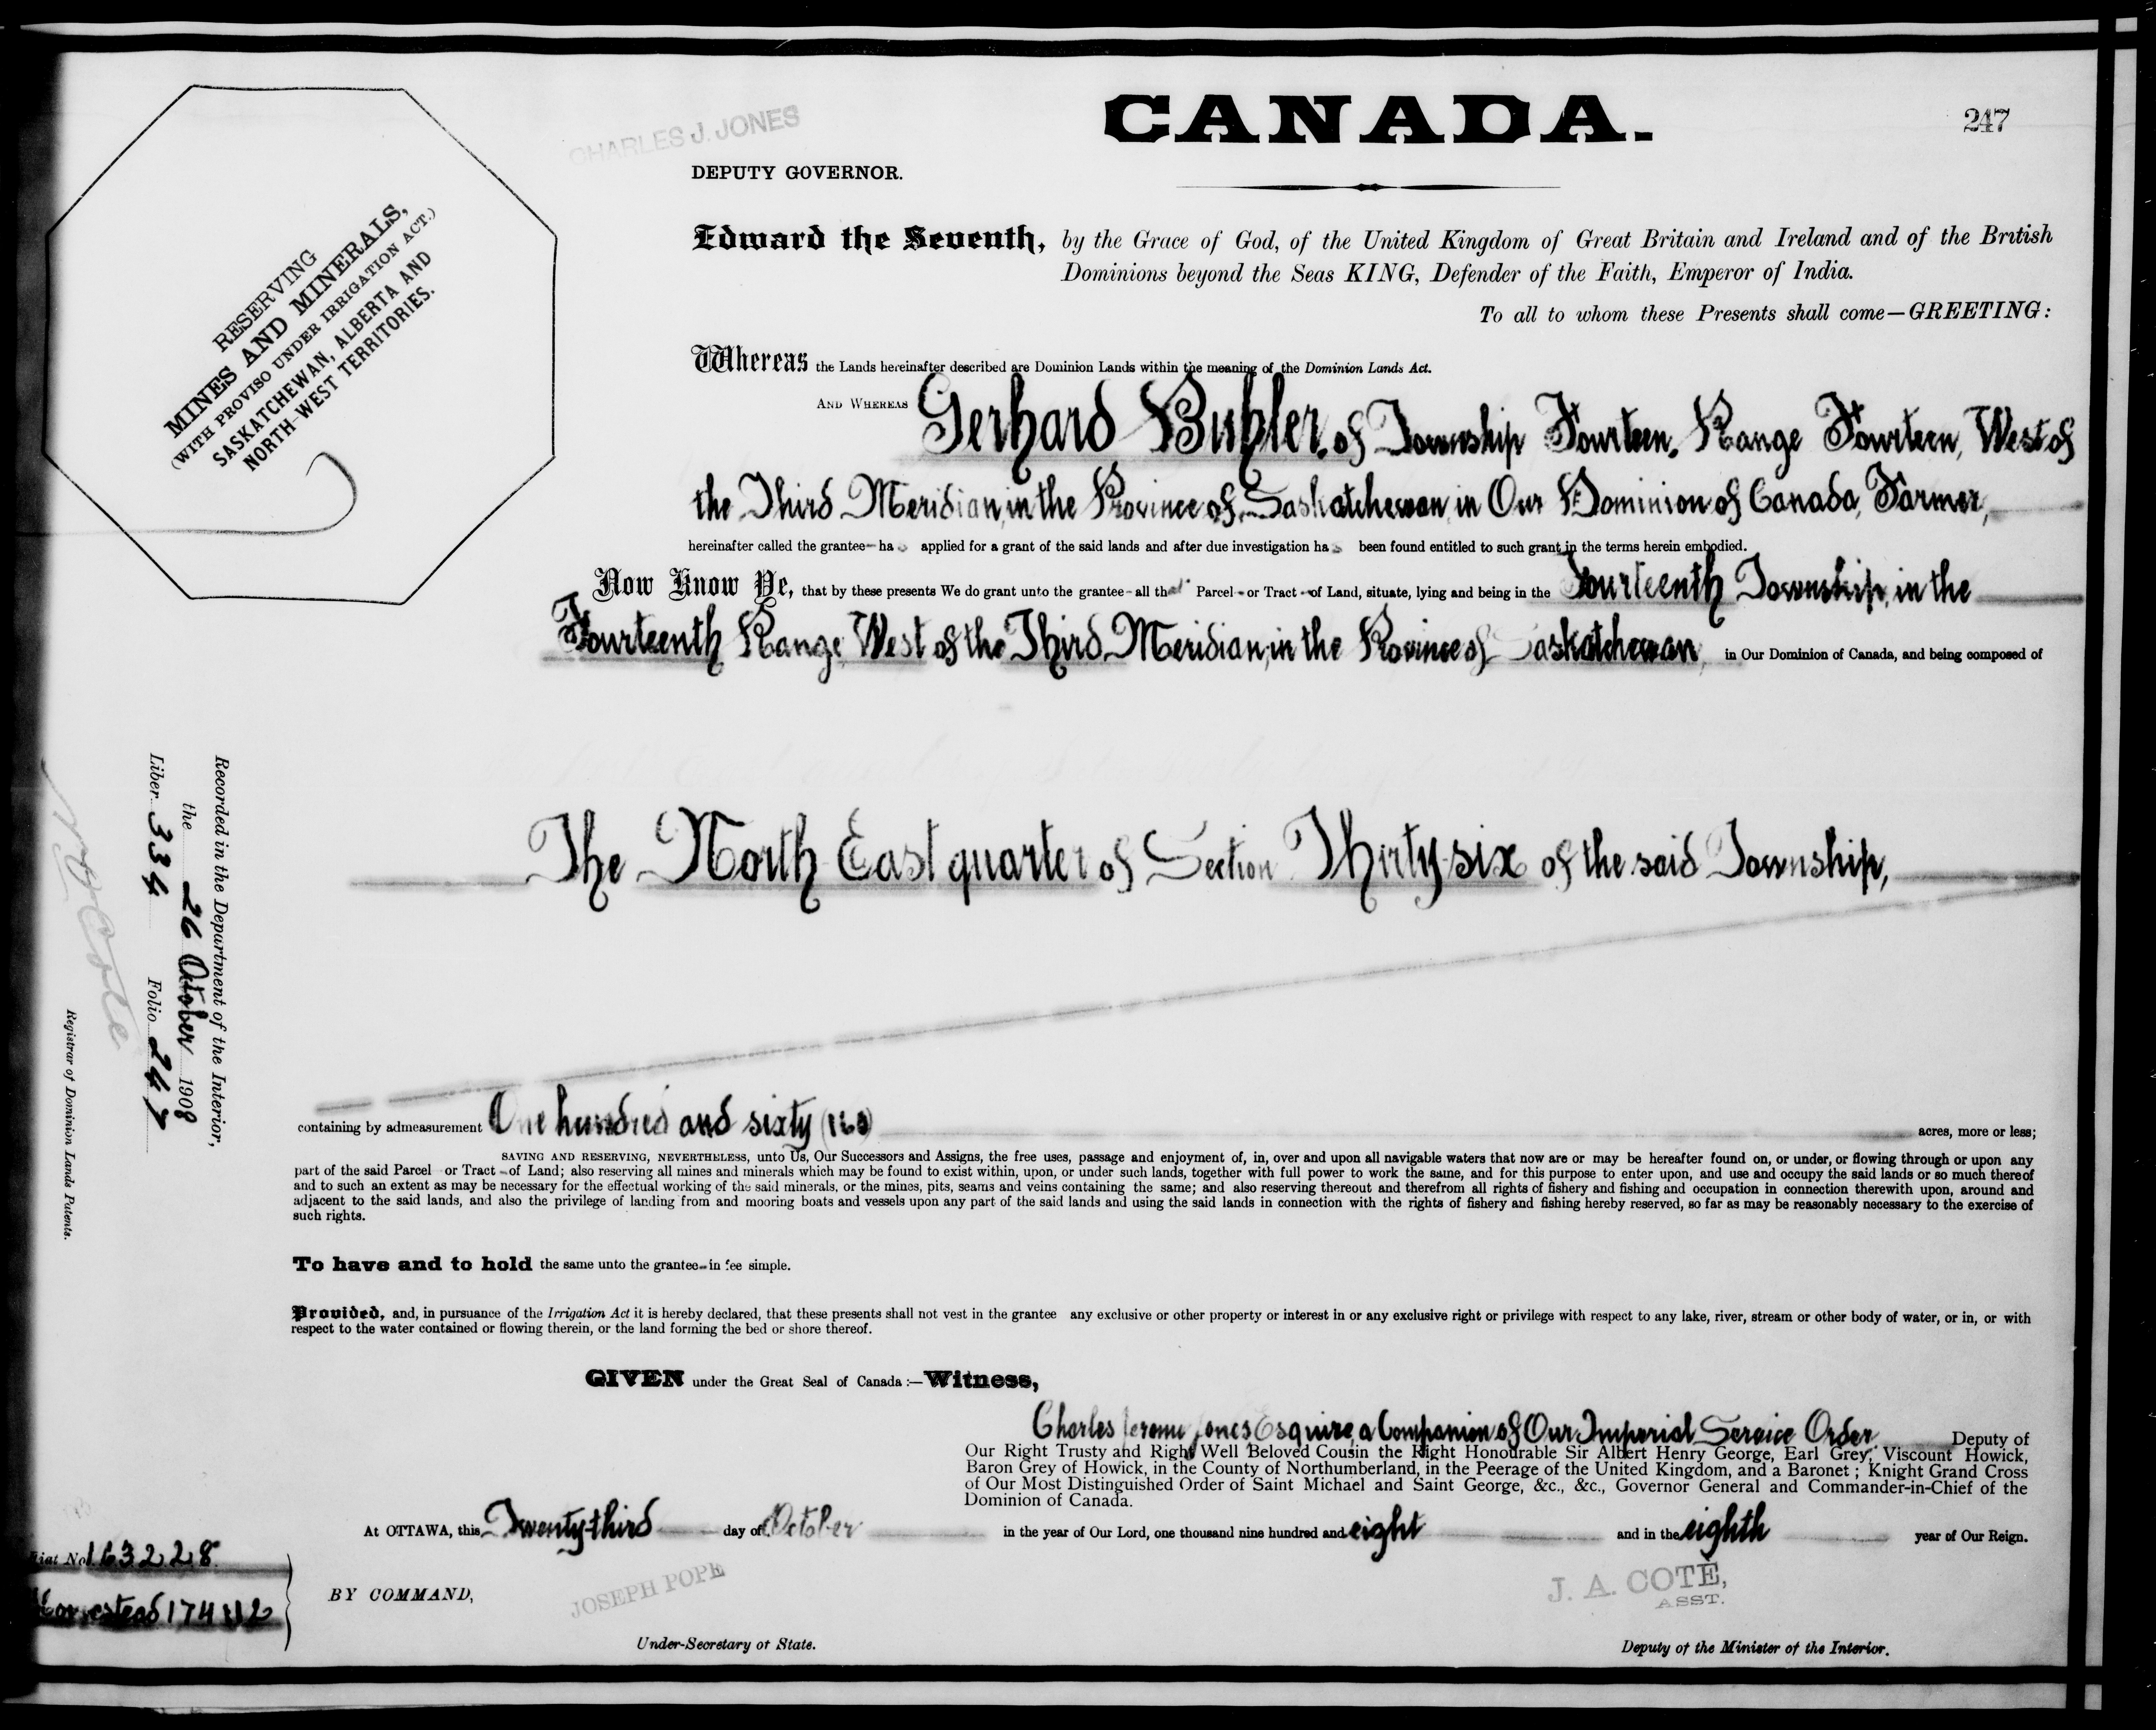 CANADA.
247
CHARLES J. JONES
DEPUTY GOVERNOR.
RESERVING
MINES AND MINERALS,
(WITH PROVISO UNDER IRRIGATION ACT.)
SASKATCHEWAN, ALBERTA AND
NORTH-WEST TERRITORIES.
Edward the Seventh, by the Grace of God, of the United Kingdom of Great Britain and Ireland and of the British
Dominions beyond the Seas KING, Defender of the Faith, Emperor of India.
To all to whom these Presents shall come—GREETING:
Whereas the Lands hereinafter described are Dominion Lands within the meaning of the Dominion Lands Act.
AND WHEREAS Gerhard Buhler, of Township Fourteen, Range Fourteen, West of
the Third Meridian, in the Province of Saskatchewan, in Our Dominion of Canada, Farmer,
hereinafter called the grantee ha s applied for a grant of the said lands and after due investigation ha s been found entitled to such grant in the terms herein embodied.
Now Know Ye, that by these presents We do grant unto the grantee all that Parcel or Tract of Land, situate, lying and being in the Fourteenth Township, in the
Fourteenth Range, West of the Third Meridian, in the Province of Saskatchewan, in Our Dominion of Canada, and being composed of
The North East quarter of Section Thirty-six of the said Township,
containing by admeasurement One hundred and sixty (160) acres, more or less;
SAVING AND RESERVING, NEVERTHELESS, unto Us, Our Successors and Assigns, the free uses, passage and enjoyment of, in, over and upon all navigable waters that now are or may be hereafter found on, or under, or flowing through or upon any
part of the said Parcel or Tract of Land; also reserving all mines and minerals which may be found to exist within, upon, or under such lands, together with full power to work the same, and for this purpose to enter upon, and use and occupy the said lands or so much thereof
and to such an extent as may be necessary for the effectual working of the said minerals, or the mines, pits, seams and veins containing the same; and also reserving thereout and therefrom all rights of fishery and fishing and occupation in connection therewith upon, around and
adjacent to the said lands, and also the privilege of landing from and mooring boats and vessels upon any part of the said lands and using the said lands in connection with the rights of fishery and fishing hereby reserved, so far as may be reasonably necessary to the exercise of
such rights.
To have and to hold the same unto the grantee in fee simple.
Provided, and, in pursuance of the Irrigation Act it is hereby declared, that these presents shall not vest in the grantee any exclusive or other property or interest in or any exclusive right or privilege with respect to any lake, river, stream or other body of water, or in, or with
respect to the water contained or flowing therein, or the land forming the bed or shore thereof.
GIVEN under the Great Seal of Canada :—Witness,
Charles Jerome Jones Esquire, a Companion of Our Imperial Service Order Deputy of
Our Right Trusty and Right Well Beloved Cousin the Right Honourable Sir Albert Henry George, Earl Grey, Viscount Howick,
Baron Grey of Howick, in the County of Northumberland, in the Peerage of the United Kingdom, and a Baronet ; Knight Grand Cross
of Our Most Distinguished Order of Saint Michael and Saint George, &c., &c., Governor General and Commander-in-Chief of the
Dominion of Canada.
At OTTAWA, this Twenty-third day of October in the year of Our Lord, one thousand nine hundred and eight and in the eighth year of Our Reign.
BY COMMAND,
JOSEPH POPE
Under-Secretary of State.
J. A. COTÉ,
ASST.
Deputy of the Minister of the Interior.
Recorded in the Department of the Interior,
the 26 October 1908
Liber 334 Folio 247
Registrar of Dominion Lands Patents.
Fiat No. 163228
Homestead